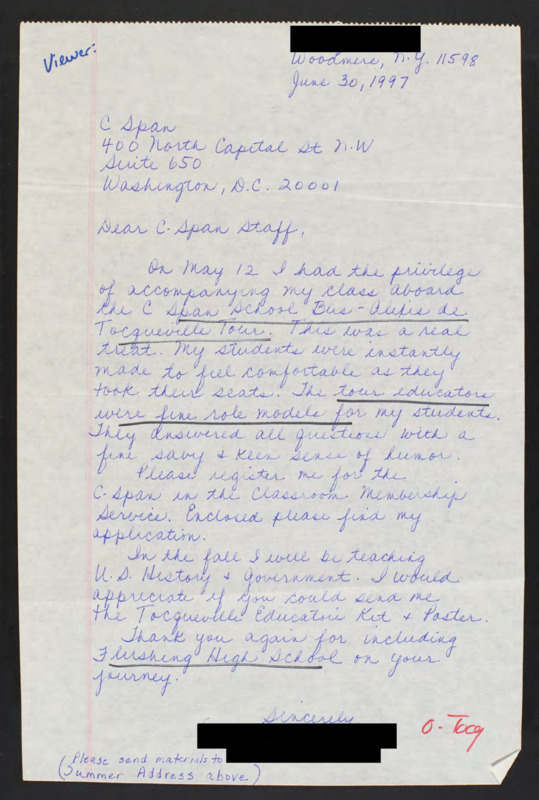 Viewer:
Woodmere, N.Y. 11598
June 30, 1997
C Span
400 North Capital St N.W
Suite 650
Washington, D.C. 20001
Dear C-Span Staff,
On May 12 I had the privilege
of accompanying my class aboard
the C Span School Bus - Alexis de
Tocqueville Tour. This was a real
treat. My students were instantly
made to feel comfortable as they
took their seats. The tour educators
were fine role models for my students.
They answered all questions with a
fine savy & keen sense of humor.
Please register me for the
C-Span in the Classroom Membership
Service. Enclosed please find my
application.
In the fall I will be teaching
U.S. History & Government. I would
appreciate if you could send me
the Tocqueville Educators Kit & Poster.
Thank you again for including
Flushing High School on your
journey.
Sincerely
O-Tocq
(Please send materials to
Summer Address above.)